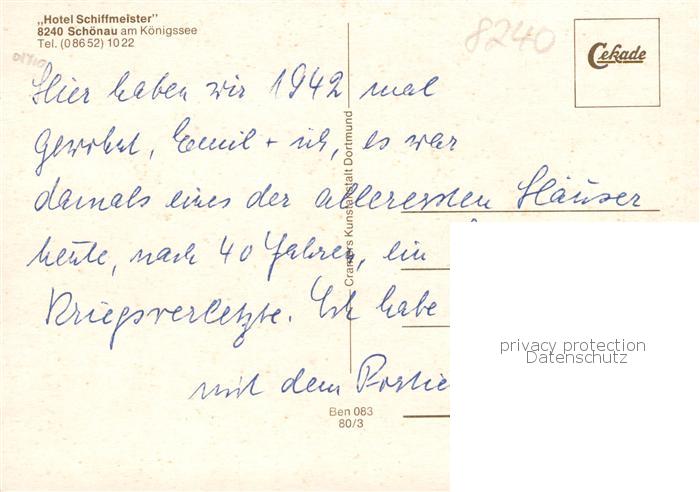 „Hotel Schiffmeister"
8240 Schönau am Königssee
Tel. (08652) 1022
8240
Cekade
Hier haben wir 1942 mal
gewohnt, Emil + ich, es war
damals eines der allerersten Häuser
heute, nach 40 Jahren, ein
Kriegsverletzte. Ich habe
mit dem Portie
Cramers Kunstanstalt Dortmund
Ben 083
80/3
privacy protection
Datenschutz